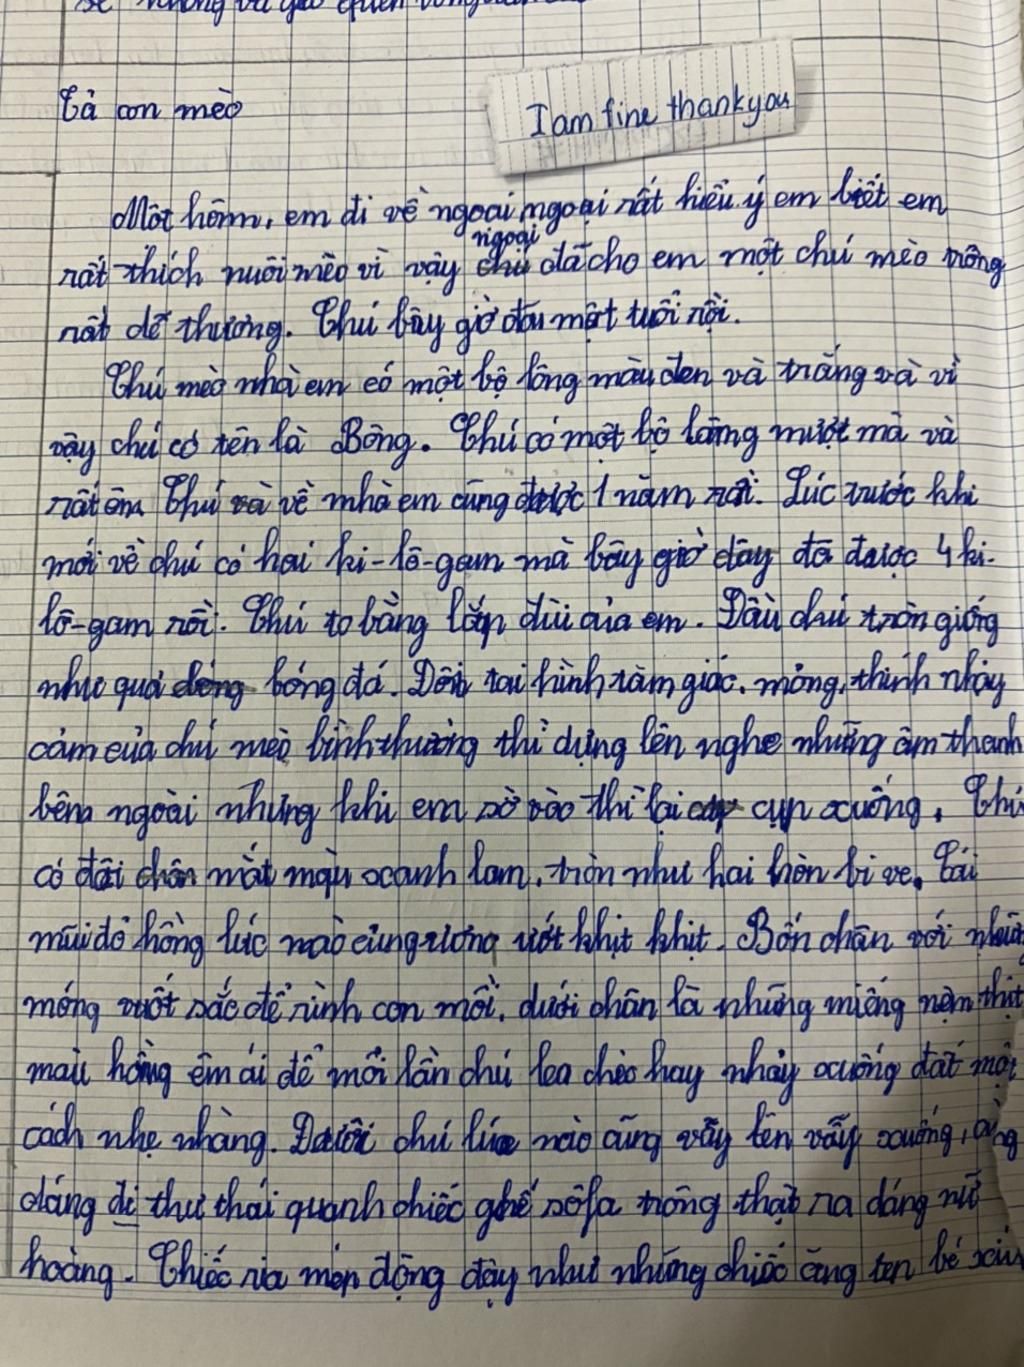 Tả con mèo
I am fine thankyou
Một hôm, em đi về ngoại ngoại rất hiểu ý em biết em
rất thích nuôi mèo vì vậy ngoại đã cho em một chú mèo trông
rất dễ thương. Chú bây giờ đã một tuổi rồi.
Chú mèo nhà em có một bộ lông màu đen và trắng và vì
vậy chú có tên là Bông. Chú có một bộ lông mượt mà và
rất ấm. Chú về nhà em cũng được 1 năm rồi. Lúc trước khi
mới về chú có hai ki-lô-gam mà bây giờ đây đã được 4 ki-
lô-gam rồi. Chú to bằng bắp đùi của em. Đầu chú tròn giống
như quả bóng đá. Đôi tai hình tam giác, mỏng, thính nhạy
cảm của chú mèo bình thường thì dựng lên nghe những âm thanh
bên ngoài nhưng khi em sờ vào thì lại cụp xuống. Chú
có đôi mắt màu xanh lam, tròn như hai hòn bi ve. Cái
mũi đỏ hồng lúc nào cũng ươn ướt khịt khịt. Bốn chân với những
móng vuốt sắc để rình con mồi, dưới chân là những miếng nệm thịt
màu hồng êm ái để mỗi lần chú leo chèo hay nhảy xuống đất một
cách nhẹ nhàng. Đuôi chú lúc nào cũng vẫy lên vẫy xuống, cùng
dáng đi thư thái quanh chiếc ghế sôfa trông thật ra dáng nữ
hoàng. Chiếc ria mép động đậy như những chiếc ăng ten bé xíu